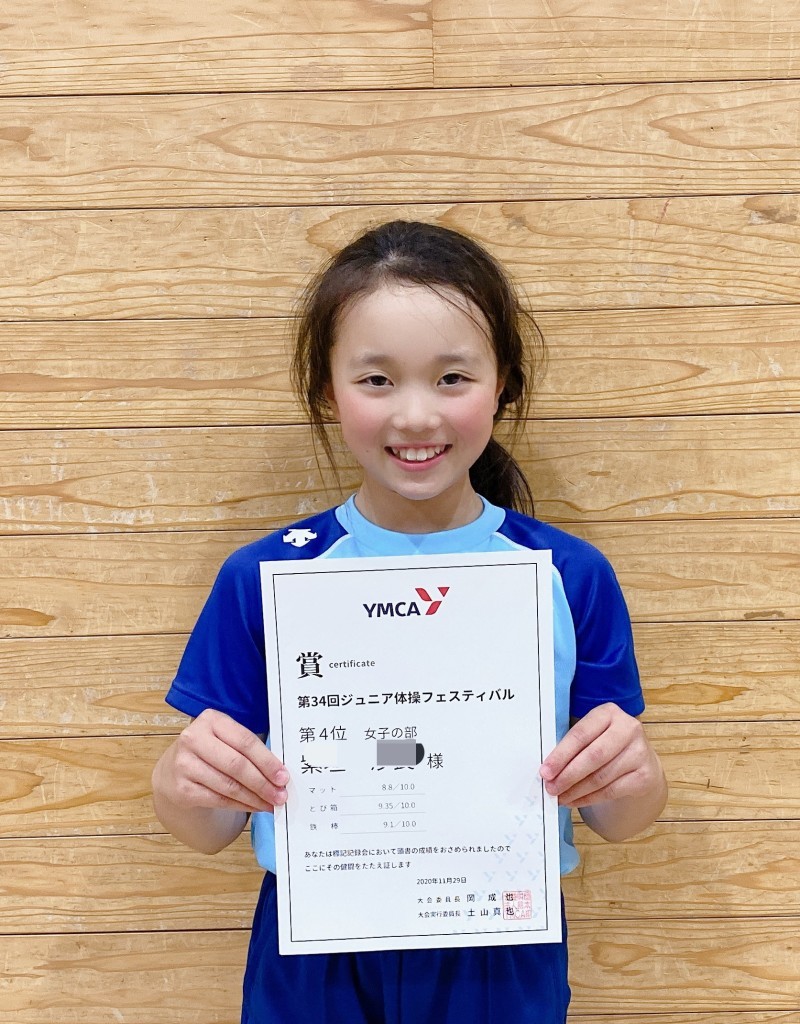 YMCA
賞 certificate
第34回ジュニア体操フェスティバル
第4位 女子の部
様
マット 8.8/10.0
とび箱 9.35/10.0
鉄棒 9.1/10.0
あなたは標記記録会において頭書の成績をおさめられましたので
ここにその健闘をたたえ証します
2020年11月29日
大会委員長 岡 成也
大会実行委員長 土山真也